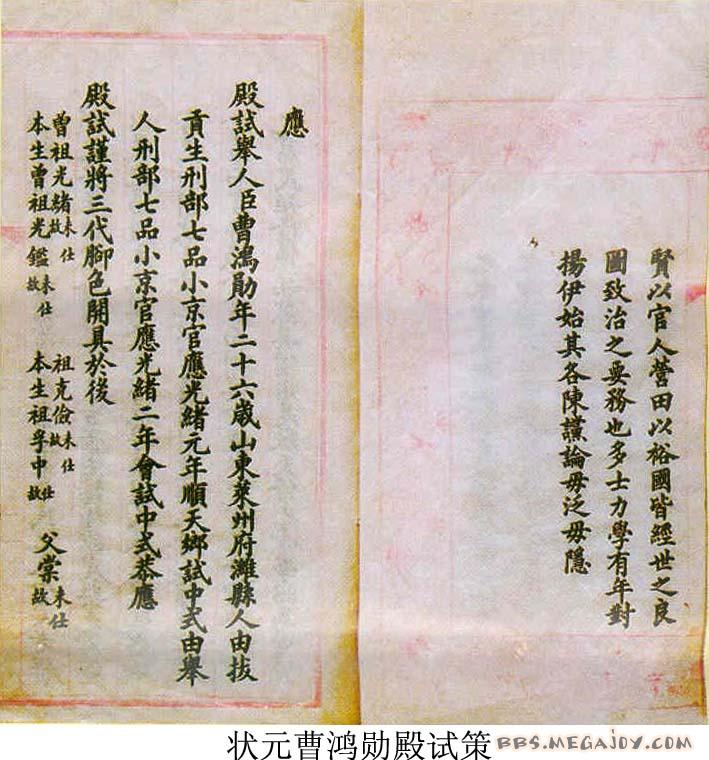 賢以官人營田以裕國皆經世之良
圖致治之要務也多士力學有年對
揚伊始其各陳讜論毋泛毋隱
應
殿試舉人臣曹鴻勛年二十六歲山東萊州府濰縣人由拔
貢生刑部七品小京官應光緒元年順天鄉試中式由舉
人刑部七品小京官應光緒二年會試中式恭應
殿試謹將三代腳色開具於後
曾祖光緒未仕故 祖克儉未仕故 父棠未仕故
本生曾祖光鑑未仕故 本生祖孚中仕故
状元曹鸿勋殿试策
BBS.MEGAJOY.COM